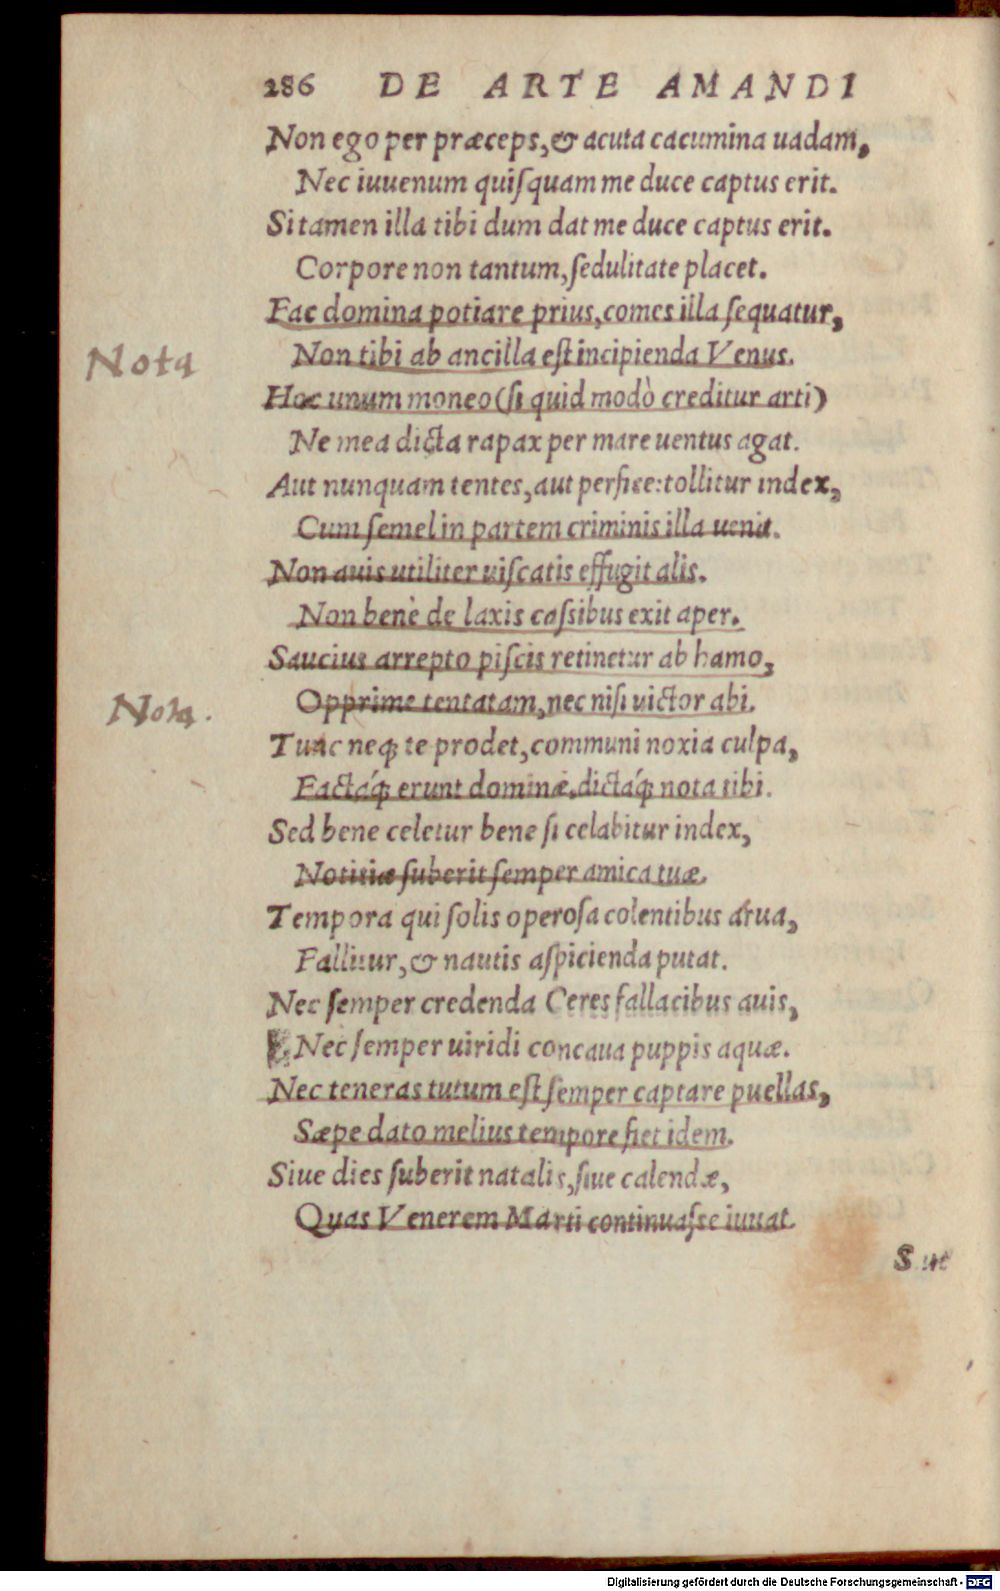 286 DE ARTE AMANDI
Non ego per præceps,& acuta cacumina uadam,
Nec iuuenum quiſquam me duce captus erit.
Si tamen illa tibi dum dat me duce captus erit.
Corpore non tantum,ſedulitate placet.
Fac domina potiare prius,comes illa ſequatur,
Nota
Non tibi ab ancilla eſt incipienda Venus.
Hoc unum moneo(ſi quid modò creditur arti)
Ne mea dicta rapax per mare uentus agat.
Aut nunquam tentes,aut perfice:tollitur index,
Cum ſemel in partem criminis illa uenit.
Non auis utiliter uiſcatis effugit alis.
Non benè de laxis caſsibus exit aper.
Saucius arrepto piſcis retinetur ab hamo,
Opprime tentatam,nec niſi victor abi.
Nota.
Tunc neq; te prodet,communi noxia culpa,
Factáq; erunt dominæ,dictáq; nota tibi.
Sed bene celetur bene ſi celabitur index,
Notitiæ ſuberit ſemper amica tuæ.
Tempora qui ſolis operoſa colentibus arua,
Fallitur,& nautis aſpicienda putat.
Nec ſemper credenda Ceres fallacibus auis,
Nec ſemper uiridi concaua puppis aquæ.
Nec teneras tutum eſt ſemper captare puellas,
Sæpe dato melius tempore fiet idem.
Siue dies ſuberit natalis,ſiue calendæ,
Quas Venerem Marti continuaſse iuuat.
Siue
Digitalisierung gefördert durch die Deutsche Forschungsgemeinschaft - DFG